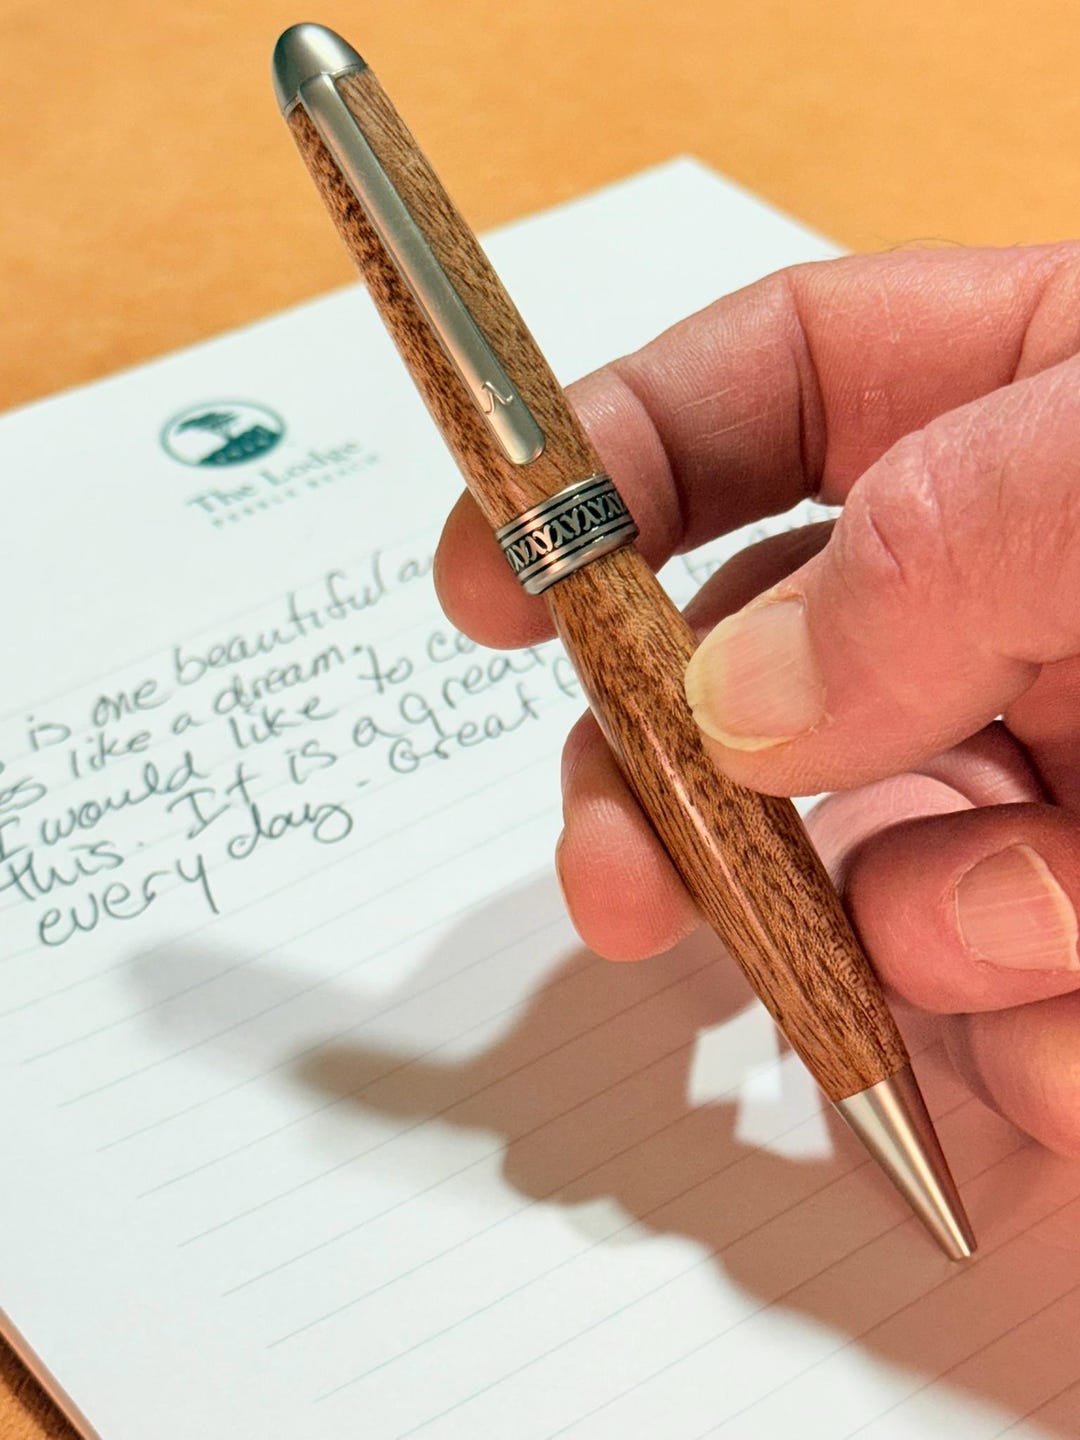 The Lodge
PEBBLE BEACH
is one beautiful
like a dream.
I would like to
this. It is a great
every day. Great